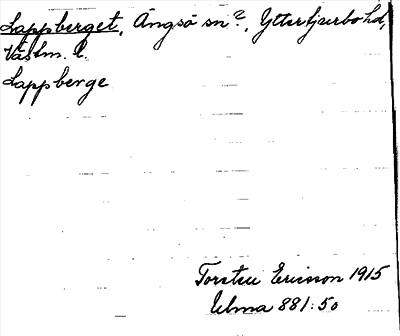 Lappberget, Ängsö sn?, Yttertjurbo hd,
Västm. l.
Lappberge
Torsten Ericsson 1915
Ulma 881:50